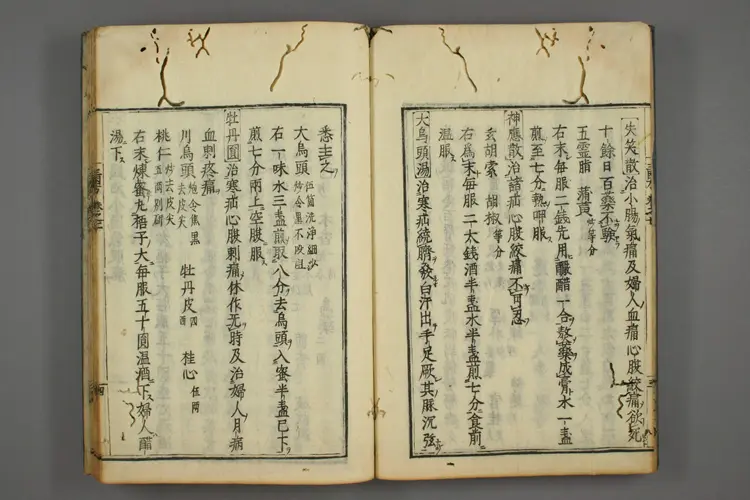 失笑散治小腸氣痛及婦人血痛心腹絞痛欲死
十餘日百藥不驗
五靈脂 蒲黄等分
右末每服二錢先用釅醋一合熬藥成膏水一盞
煎至七分熱呷服
神應散治諸疝心腹絞痛不可忍
玄胡索 胡椒等分
右爲末每服二大錢酒半盞水半盞煎七分食前
温服
大烏頭湯治寒疝繞臍發白汗出手足厥其脉沉弦
悉主之
大烏頭
右一味水三盞煎取八分去烏頭入蜜半盞已下
煎七分兩上空腹服
牡丹圓治寒疝心腹刺痛休作无時及治婦人月病
血刺疼痛
川烏頭炮令焦黑去皮尖 牡丹皮四兩 桂心伍兩
桃仁炒去皮尖五兩別研
右末煉蜜丸梧子大每服五十圓温酒下婦人醋
湯下